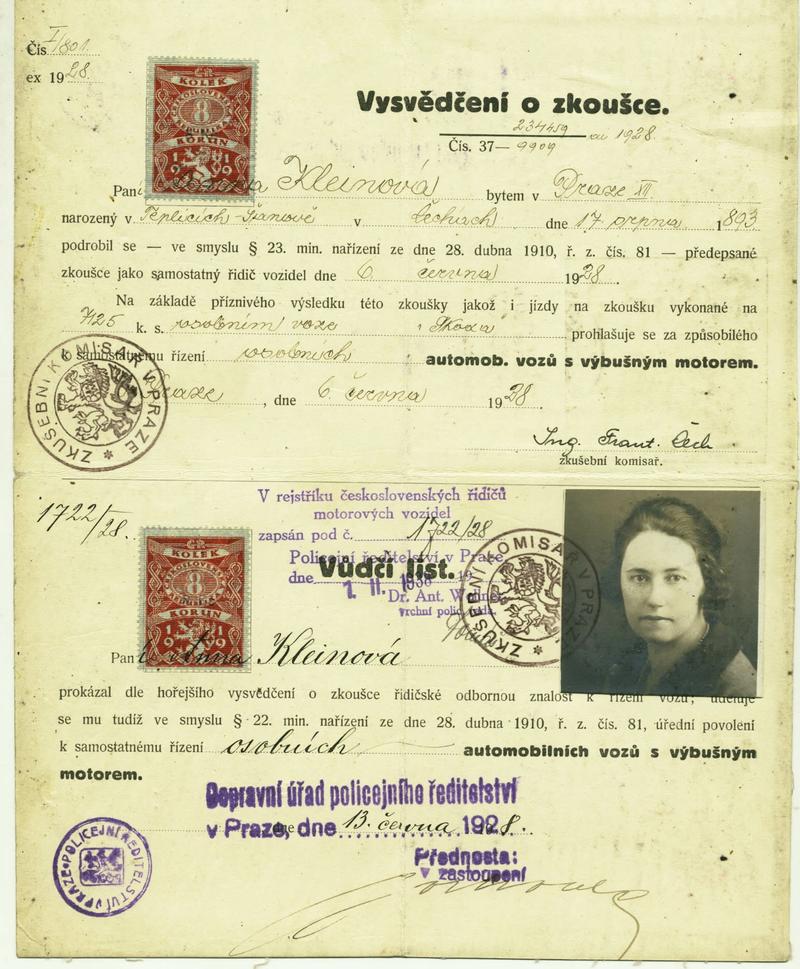 Čís. I/801.
ex 1928.
KOLEK
8
KORUN
1919
Vysvědčení o zkoušce.
Čís. 37— 234459 ex 1928.
9909
Paní Anna Kleinová bytem v Praze XII
narozený v Teplicích-Šanově v Čechách dne 17 srpna 1893
podrobil se — ve smyslu § 23. min. nařízení ze dne 28. dubna 1910, ř. z. čís. 81 — předepsané
zkoušce jako samostatný řidič vozidel dne 6. června 1928.
Na základě příznivého výsledku této zkoušky jakož i jízdy na zkoušku vykonané na
7/25 k. s. osobním voze Škoda prohlašuje se za způsobilého
k samostatnému řízení osobních automob. vozů s výbušným motorem.
Praze, dne 6. června 1928.
ZKUŠEBNÍ KOMISAŘ V PRAZE
Ing. Frant. Čech
zkušební komisař.
1722/28.
V rejstříku československých řidičů
motorových vozidel
zapsán pod č. 1722/28
Policejní ředitelství v Praze
dne 1. II. 1936
Vůdčí list.
Dr. Ant.
vrchní polic. rada.
ZKUŠEBNÍ KOMISAŘ V PRAZE
KOLEK
8
KORUN
1919
Paní Anna Kleinová
prokázal dle hořejšího vysvědčení o zkoušce řidičské odbornou znalost k řízení vozu, uděluje
se mu tudíž ve smyslu § 22. min. nařízení ze dne 28. dubna 1910, ř. z. čís. 81, úřední povolení
k samostatnému řízení osobních automobilních vozů s výbušným
motorem.
Dopravní úřad policejního ředitelství
v Praze, dne 13. června 1928.
Přednosta:
v zastoupení
POLICEJNÍ ŘEDITELSTVÍ V PRAZE